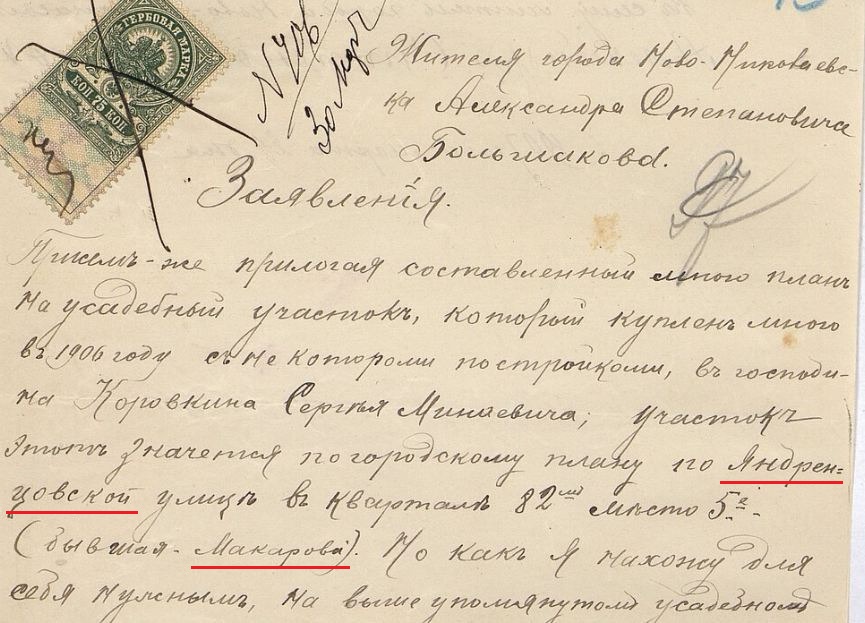 ГЕРБОВАЯ МАРКА
КОП 75 КОП
N 706
30 Мрт
Жителя города Ново-Николаевс-
ка Александра Степановича
Большакова.
Заявленія.
При семъ-же прилогая составленный мною планъ
на усадебный участокъ, который купленъ мною
въ 1906 году съ не котороми постройкоми, въ господи-
на Коровкина Сергѣя Минаевича; участокъ
Этотъ значется по городскому плану по Яндрен=
цовской улицѣ въ кварталѣ 82мъ мѣсто 5е-
(бывшая-Макарова). Но какъ я нахожу для
себя нужнымъ, на выше упомянутомъ усадебномъ